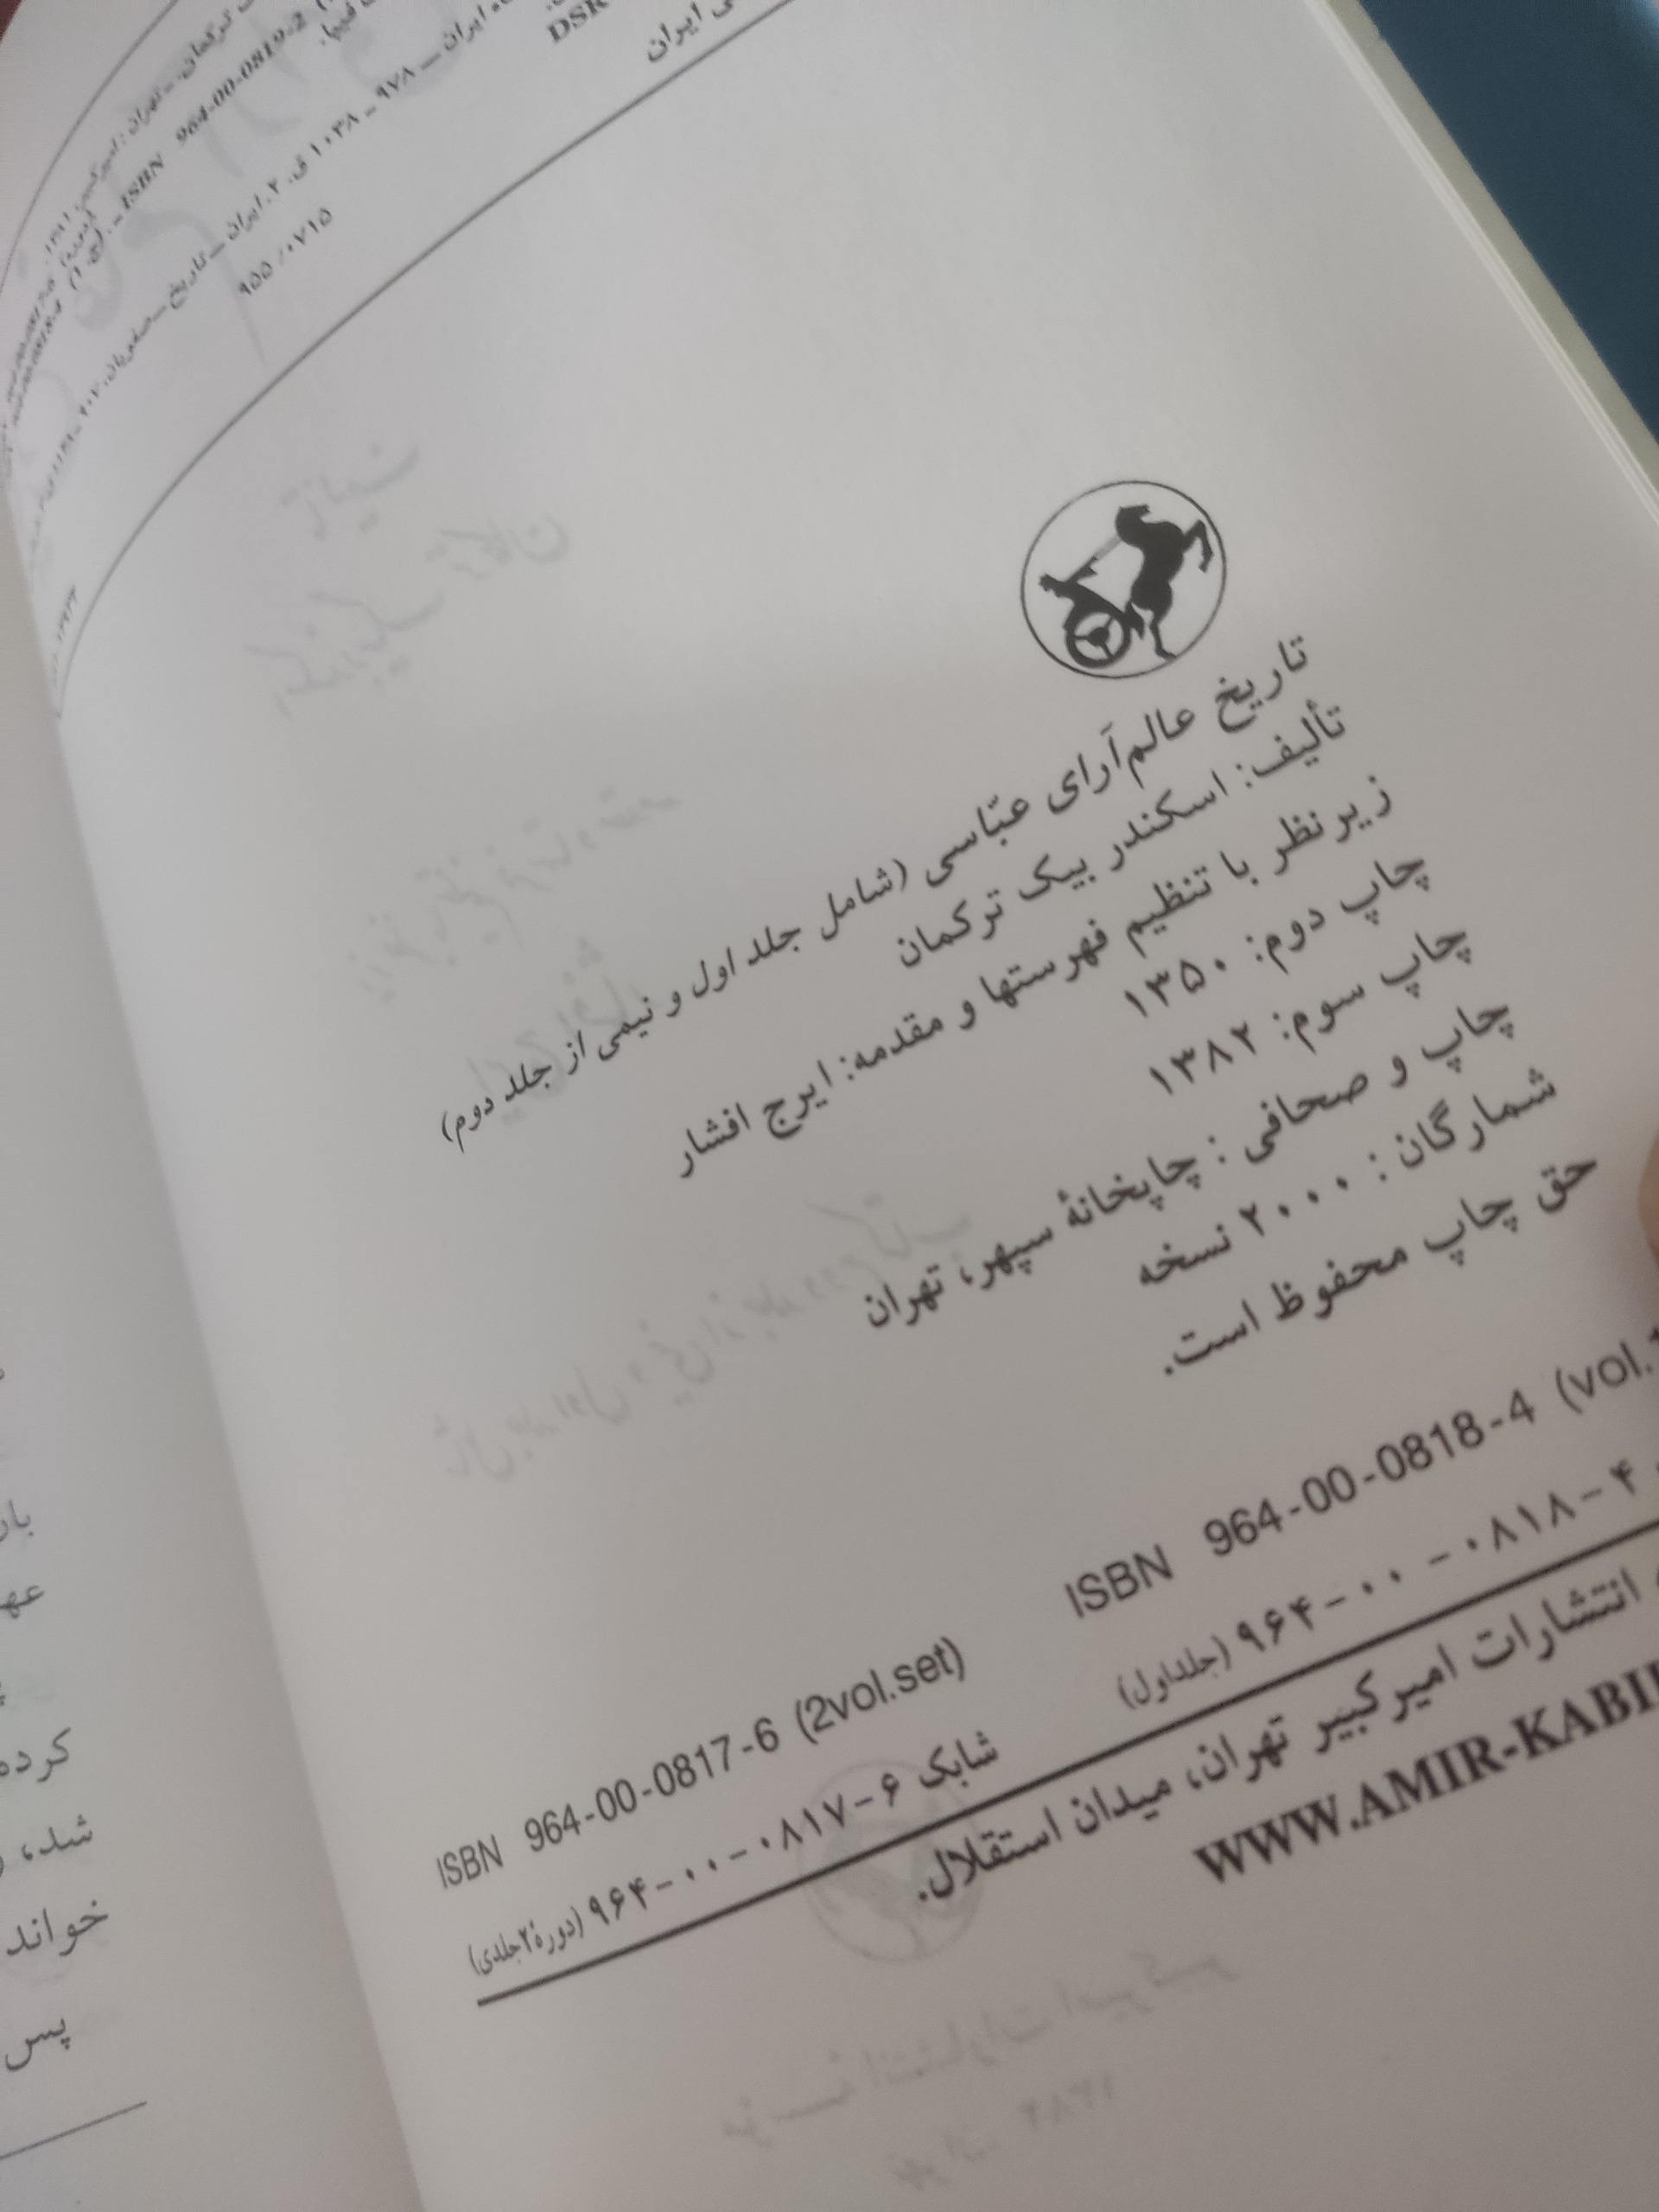 ترکمان. ـ تهران: امیرکبیر، ۱۳۸۱.
ISBN 964-00-0819-2
فیپا.
ایران ـ ۹۷۸ ـ ۱۰۳۸ ق. ۲. ایران ـ تاریخ ـ صفویان، ۹۰۷ ـ
DSR
۹۵۵/۰۷۱۵
ایران
تاریخ عالم‌آرای عبّاسی (شامل جلد اول و نیمی از جلد دوم)
تألیف: اسکندر بیک ترکمان
زیرنظر با تنظیم فهرستها و مقدمه: ایرج افشار
چاپ دوم: ۱۳۵۰
چاپ سوم: ۱۳۸۲
چاپ و صحافی : چاپخانهٔ سپهر، تهران
شمارگان : ۲۰۰۰ نسخه
حق چاپ محفوظ است.
ISBN 964-00-0817-6 (2vol.set) ISBN 964-00-0818-4 (vol.
شابک ۶-۰۸۱۷-۰۰-۹۶۴ (دورهٔ ۲جلدی) ۴-۰۸۱۸-۰۰-۹۶۴ (جلداول)
انتشارات امیرکبیر تهران، میدان استقلال.
WWW.AMIR-KABI
عه
کرده
شد،
خواند
پس